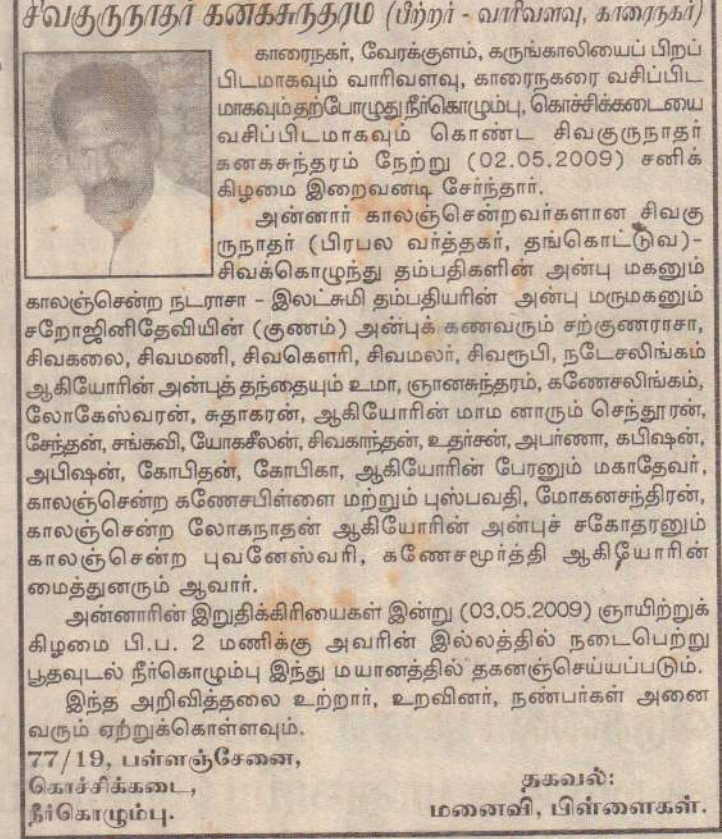 சிவகுருநாதர் கனகசுந்தரம் (பீற்றர் - வாரிவளவு, காரைநகர்)
காரைநகர், வேரக்குளம், கருங்காலியைப் பிறப்
பிடமாகவும் வாரிவளவு, காரைநகரை வசிப்பிட
மாகவும் தற்போழுது நீர்கொழும்பு, கொச்சிக்கடையை
வசிப்பிடமாகவும் கொண்ட சிவகுருநாதர்
கனகசுந்தரம் நேற்று (02.05.2009) சனிக்
கிழமை இறைவனடி சேர்ந்தார்.
அன்னார் காலஞ்சென்றவர்களான சிவகு
ருநாதர் (பிரபல வர்த்தகர், தங்கொட்டுவ)-
சிவக்கொழுந்து தம்பதிகளின் அன்பு மகனும்
காலஞ்சென்ற நடராசா - இலட்சுமி தம்பதியரின் அன்பு மருமகனும்
சறோஜினிதேவியின் (குணம்) அன்புக் கணவரும் சற்குணராசா,
சிவகலை, சிவமணி, சிவகௌரி, சிவமலர், சிவரூபி, நடேசலிங்கம்
ஆகியோரின் அன்புத் தந்தையும் உமா, ஞானசுந்தரம், கணேசலிங்கம்,
லோகேஸ்வரன், சுதாகரன், ஆகியோரின் மாம னாரும் செந்தூரன்,
சேந்தன், சங்கவி, யோகசீலன், சிவகாந்தன், உதர்சன், அபர்ணா, கபிஷன்,
அபிஷன், கோபிதன், கோபிகா, ஆகியோரின் பேரனும் மகாதேவர்,
காலஞ்சென்ற கணேசபிள்ளை மற்றும் புஸ்பவதி, மோகனசந்திரன்,
காலஞ்சென்ற லோகநாதன் ஆகியோரின் அன்புச் சகோதரனும்
காலஞ்சென்ற புவனேஸ்வரி, கணேசமூர்த்தி ஆகியோரின்
மைத்துனரும் ஆவார்.
அன்னாரின் இறுதிக்கிரியைகள் இன்று (03.05.2009) ஞாயிற்றுக்
கிழமை பி.ப. 2 மணிக்கு அவரின் இல்லத்தில் நடைபெற்று
பூதவுடல் நீர்கொழும்பு இந்து மயானத்தில் தகனஞ்செய்யப்படும்.
இந்த அறிவித்தலை உற்றார், உறவினர், நண்பர்கள் அனை
வரும் ஏற்றுக்கொள்ளவும்.
77/19, பள்ளஞ்சேனை,
கொச்சிக்கடை,
நீர்கொழும்பு.
தகவல்:
மனைவி, பிள்ளைகள்.